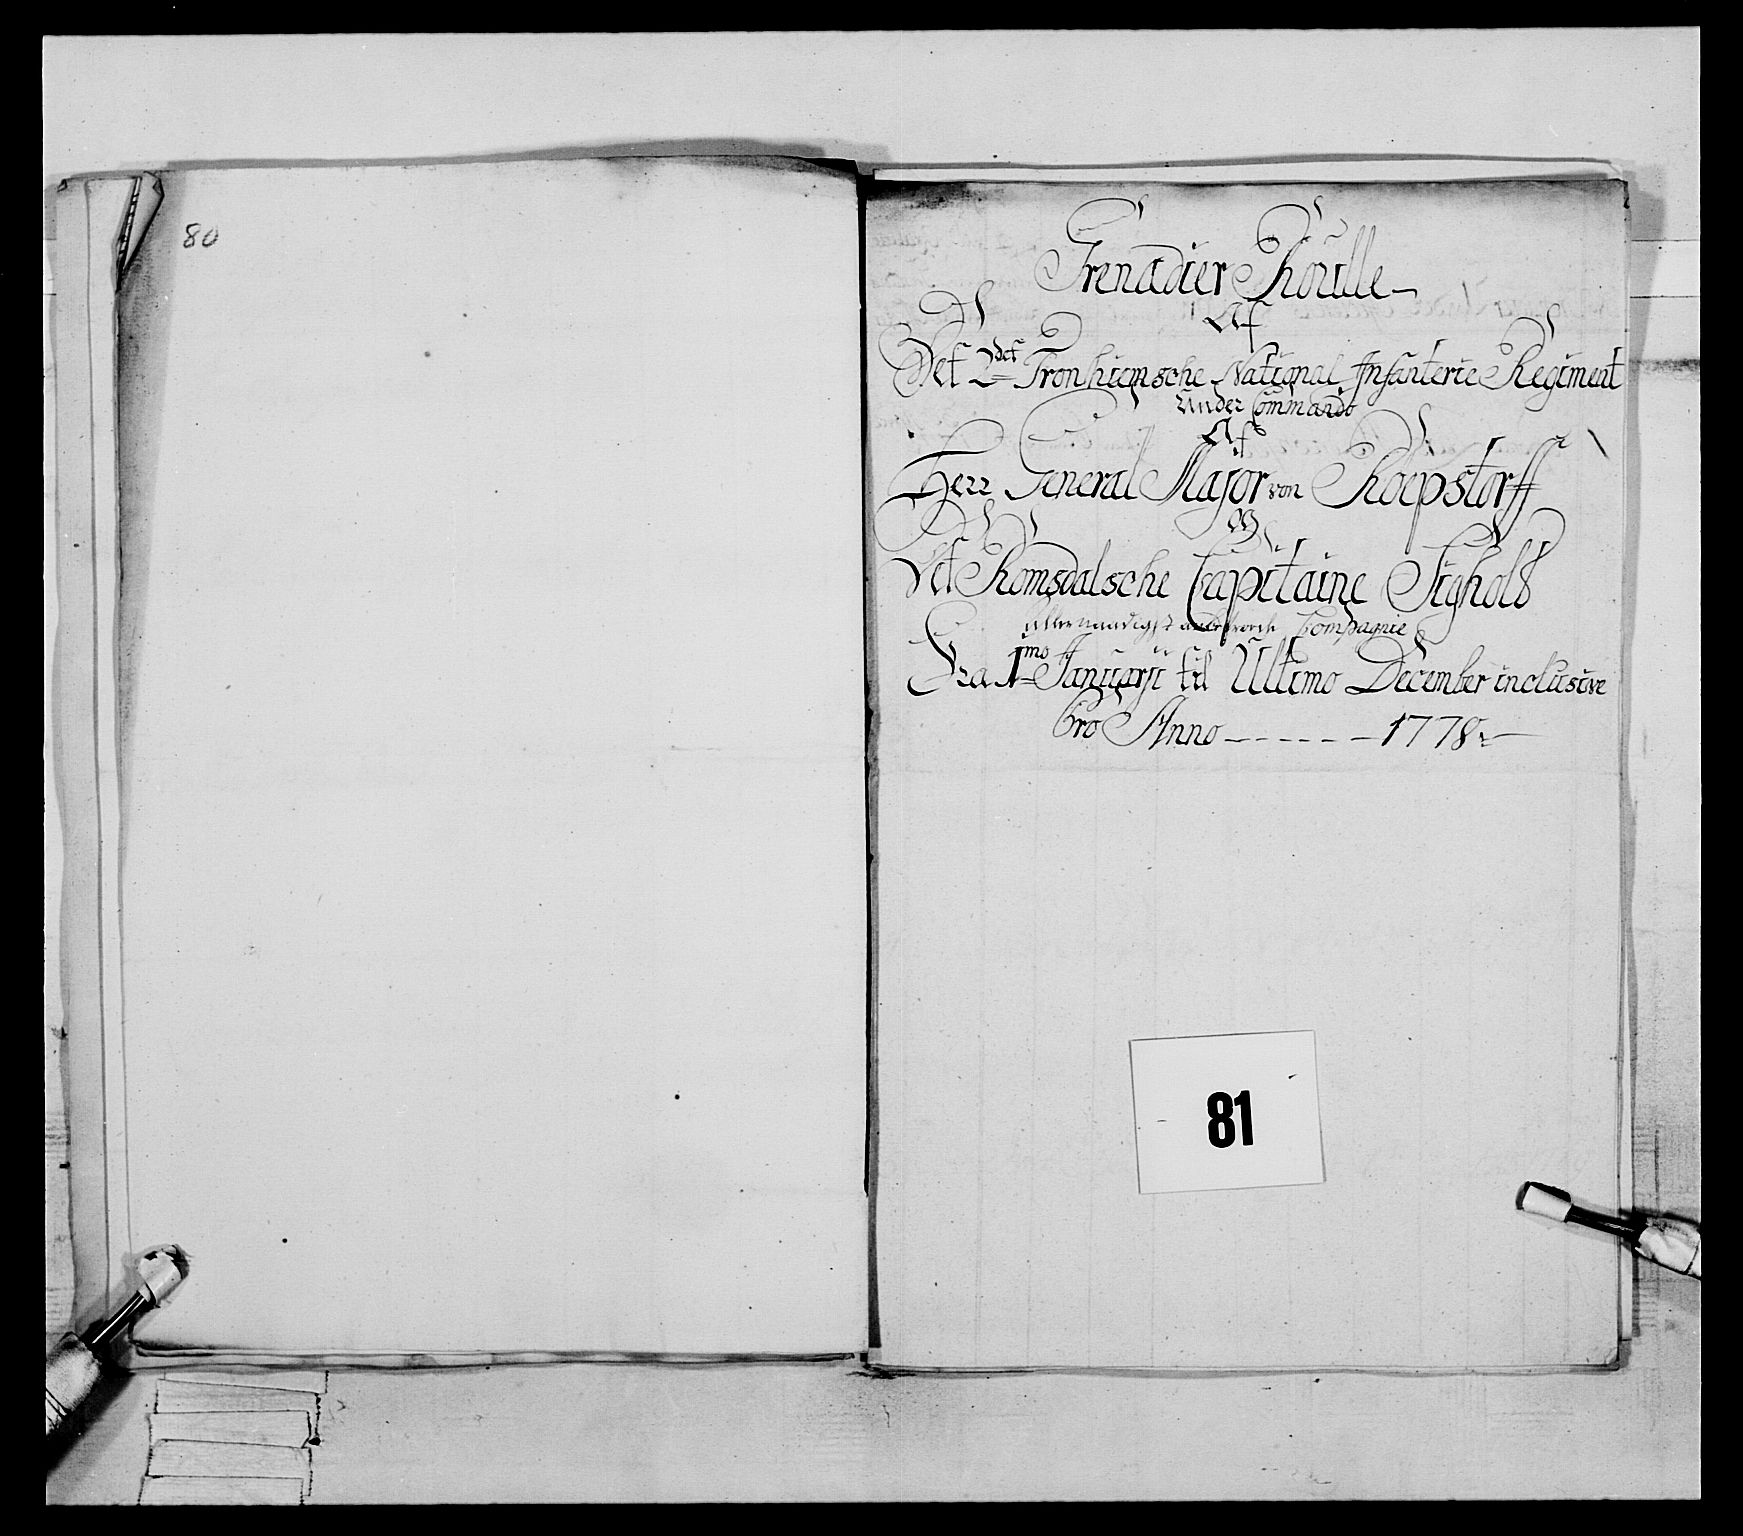 80
Grenadier Roulle
Af
Det 2det Tronhiemsche National Infanterie Regiment
Under Commando
Af
Herr General Major von Roepstorff
og
Det Romsdalsche Capitaine Sighold
allernaadigst anbetroede Compagnie
Fra 1mo Januarji til Ultimo December inclusive
Pro Anno - - - - - - 1778
81